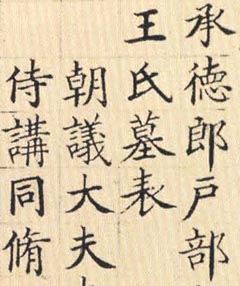 承德郎戸部
王氏墓表
朝議大夫
侍講同脩